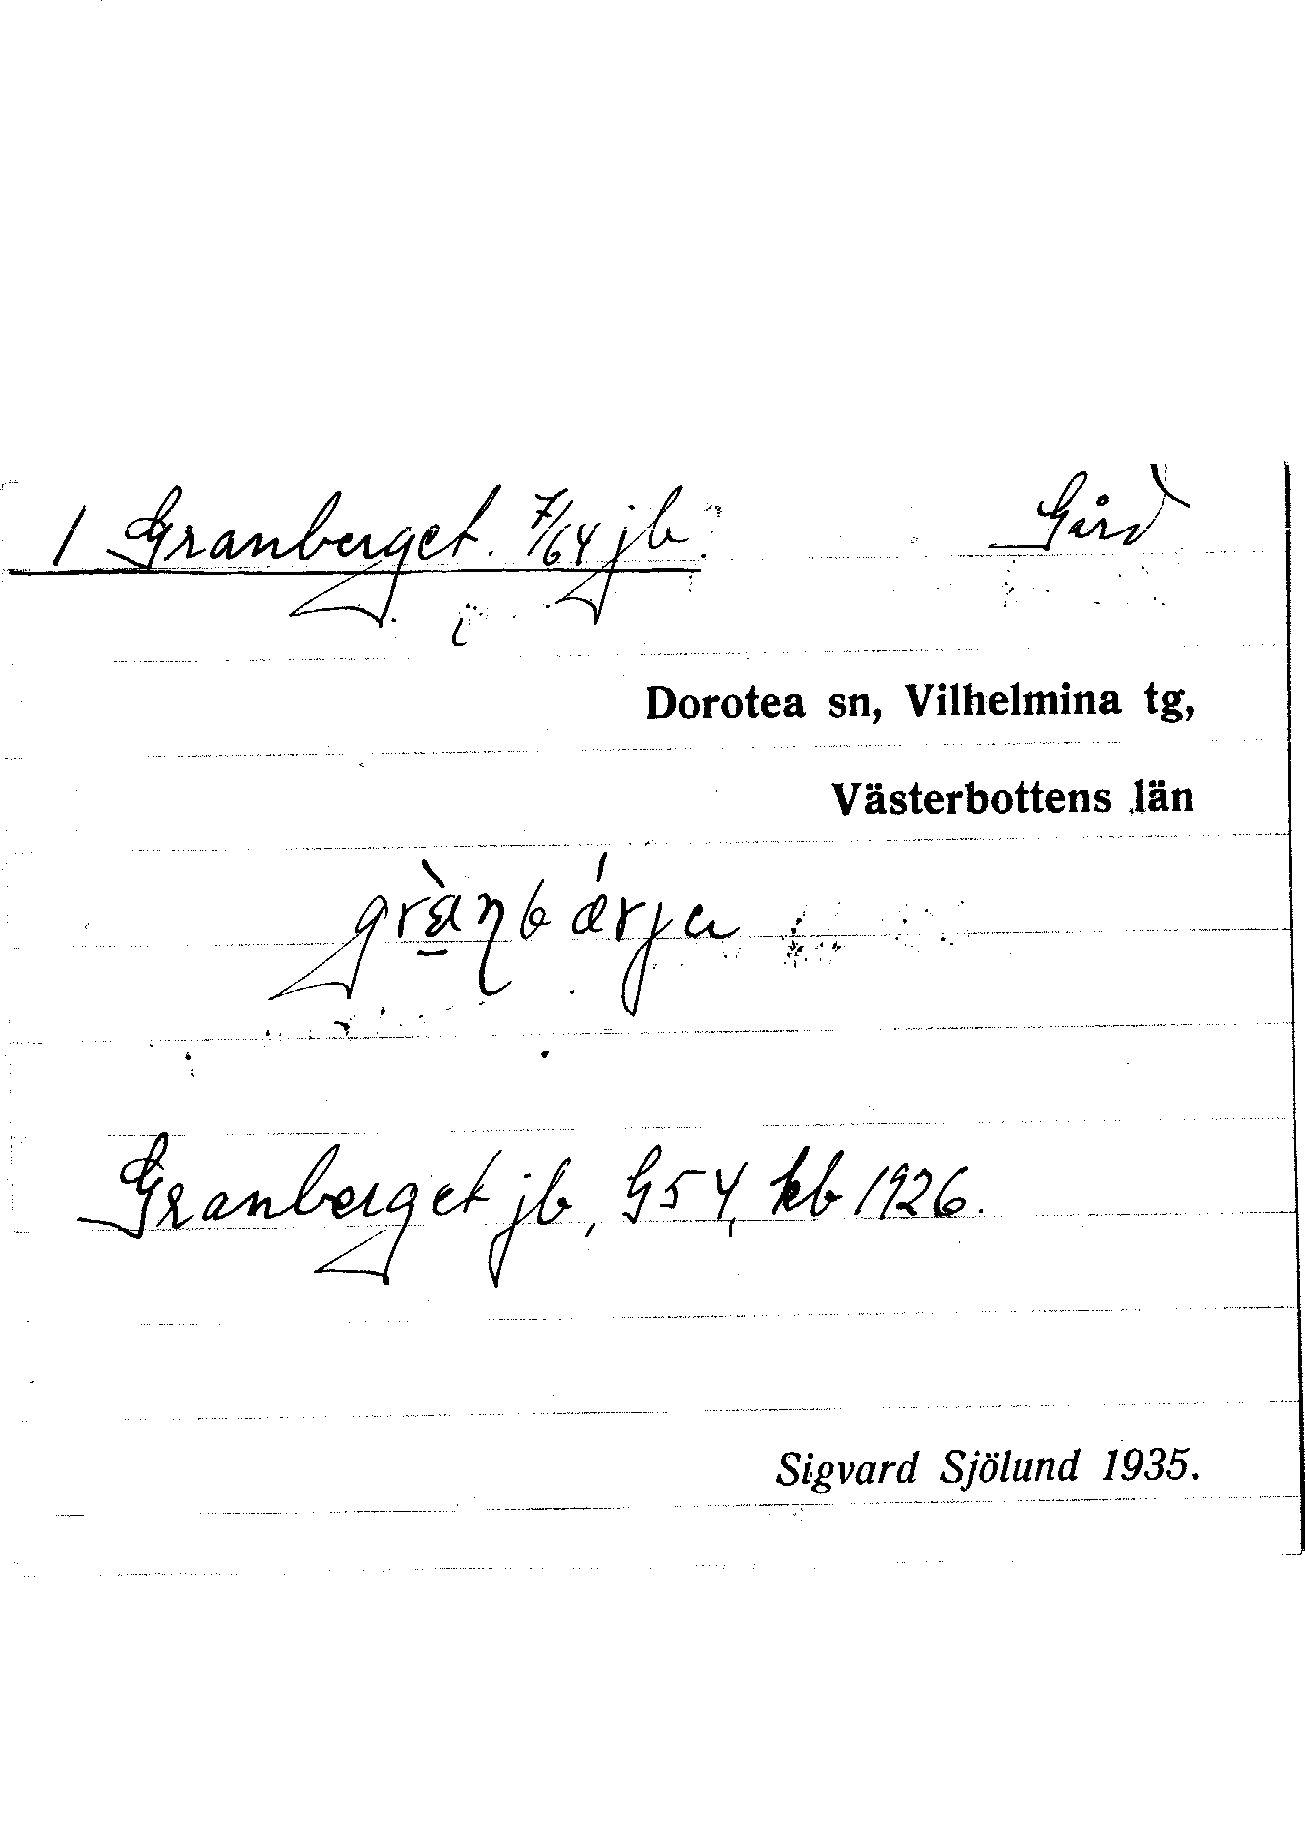 1 Granberget. 7/64 jb. Gård
Dorotea sn, Vilhelmina tg,
Västerbottens län
Granberget jb, G54, kb 1926.
Sigvard Sjölund 1935.